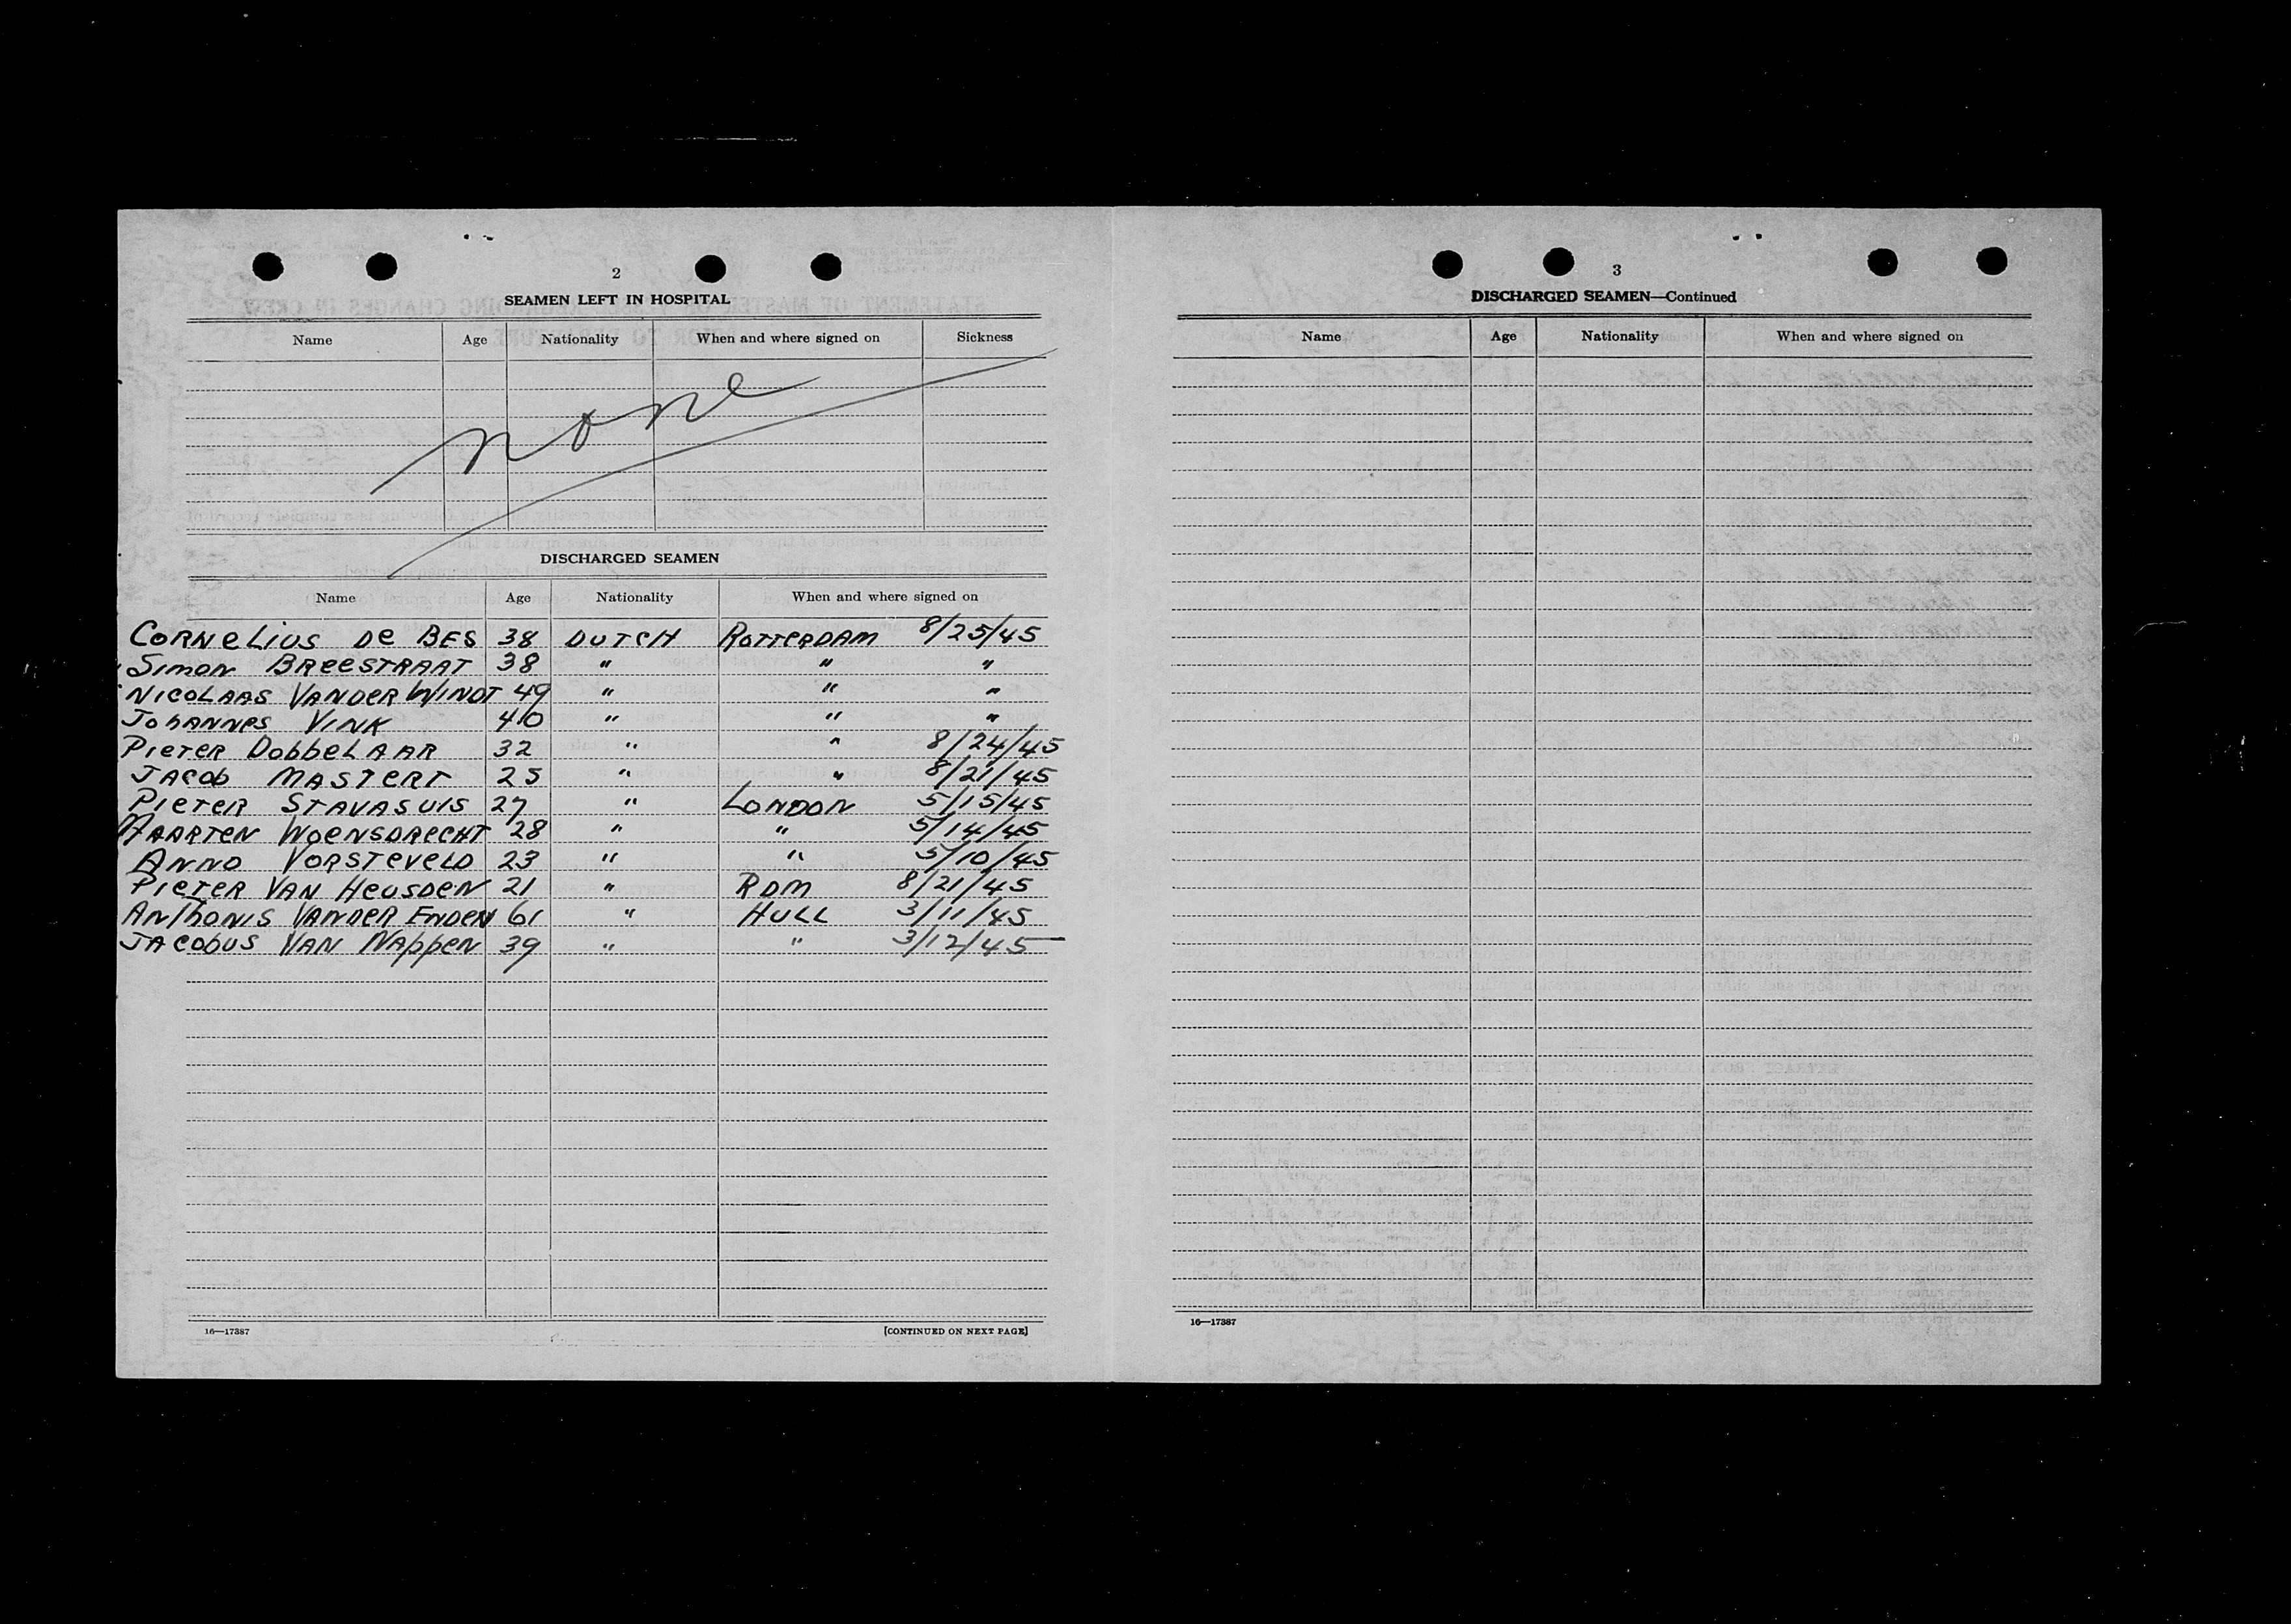 2
SEAMEN LEFT IN HOSPITAL
Name Age Nationality When and where signed on Sickness
none
DISCHARGED SEAMEN
Name Age Nationality When and where signed on
CORNeLiUS De BES 38 DUTCH ROTTERDAM 8/25/45
Simon BReeSTRAAT 38 " " "
NICOLAAS VANDER WINDT 49 " " "
JohANNes VINK 40 " " "
PIeTER DobbeLAAR 32 " " 8/24/45
JACob MASTERT 25 " " 8/21/45
PIeTER STAVASUIS 27 " LONDON 5/15/45
MAARTEN WOENSDRECHT 28 " " 5/14/45
ANNO VORSTeVeLD 23 " " 5/10/45
PIETER VAN HeUSDEN 21 " RDM 8/21/45
ANThONIS VANDER ENDEN 61 " HULL 3/11/45
JACobUS VAN NAppEN 39 " " 3/12/45
16—17387 [CONTINUED ON NEXT PAGE]
3
DISCHARGED SEAMEN—Continued
Name Age Nationality When and where signed on
16—17387